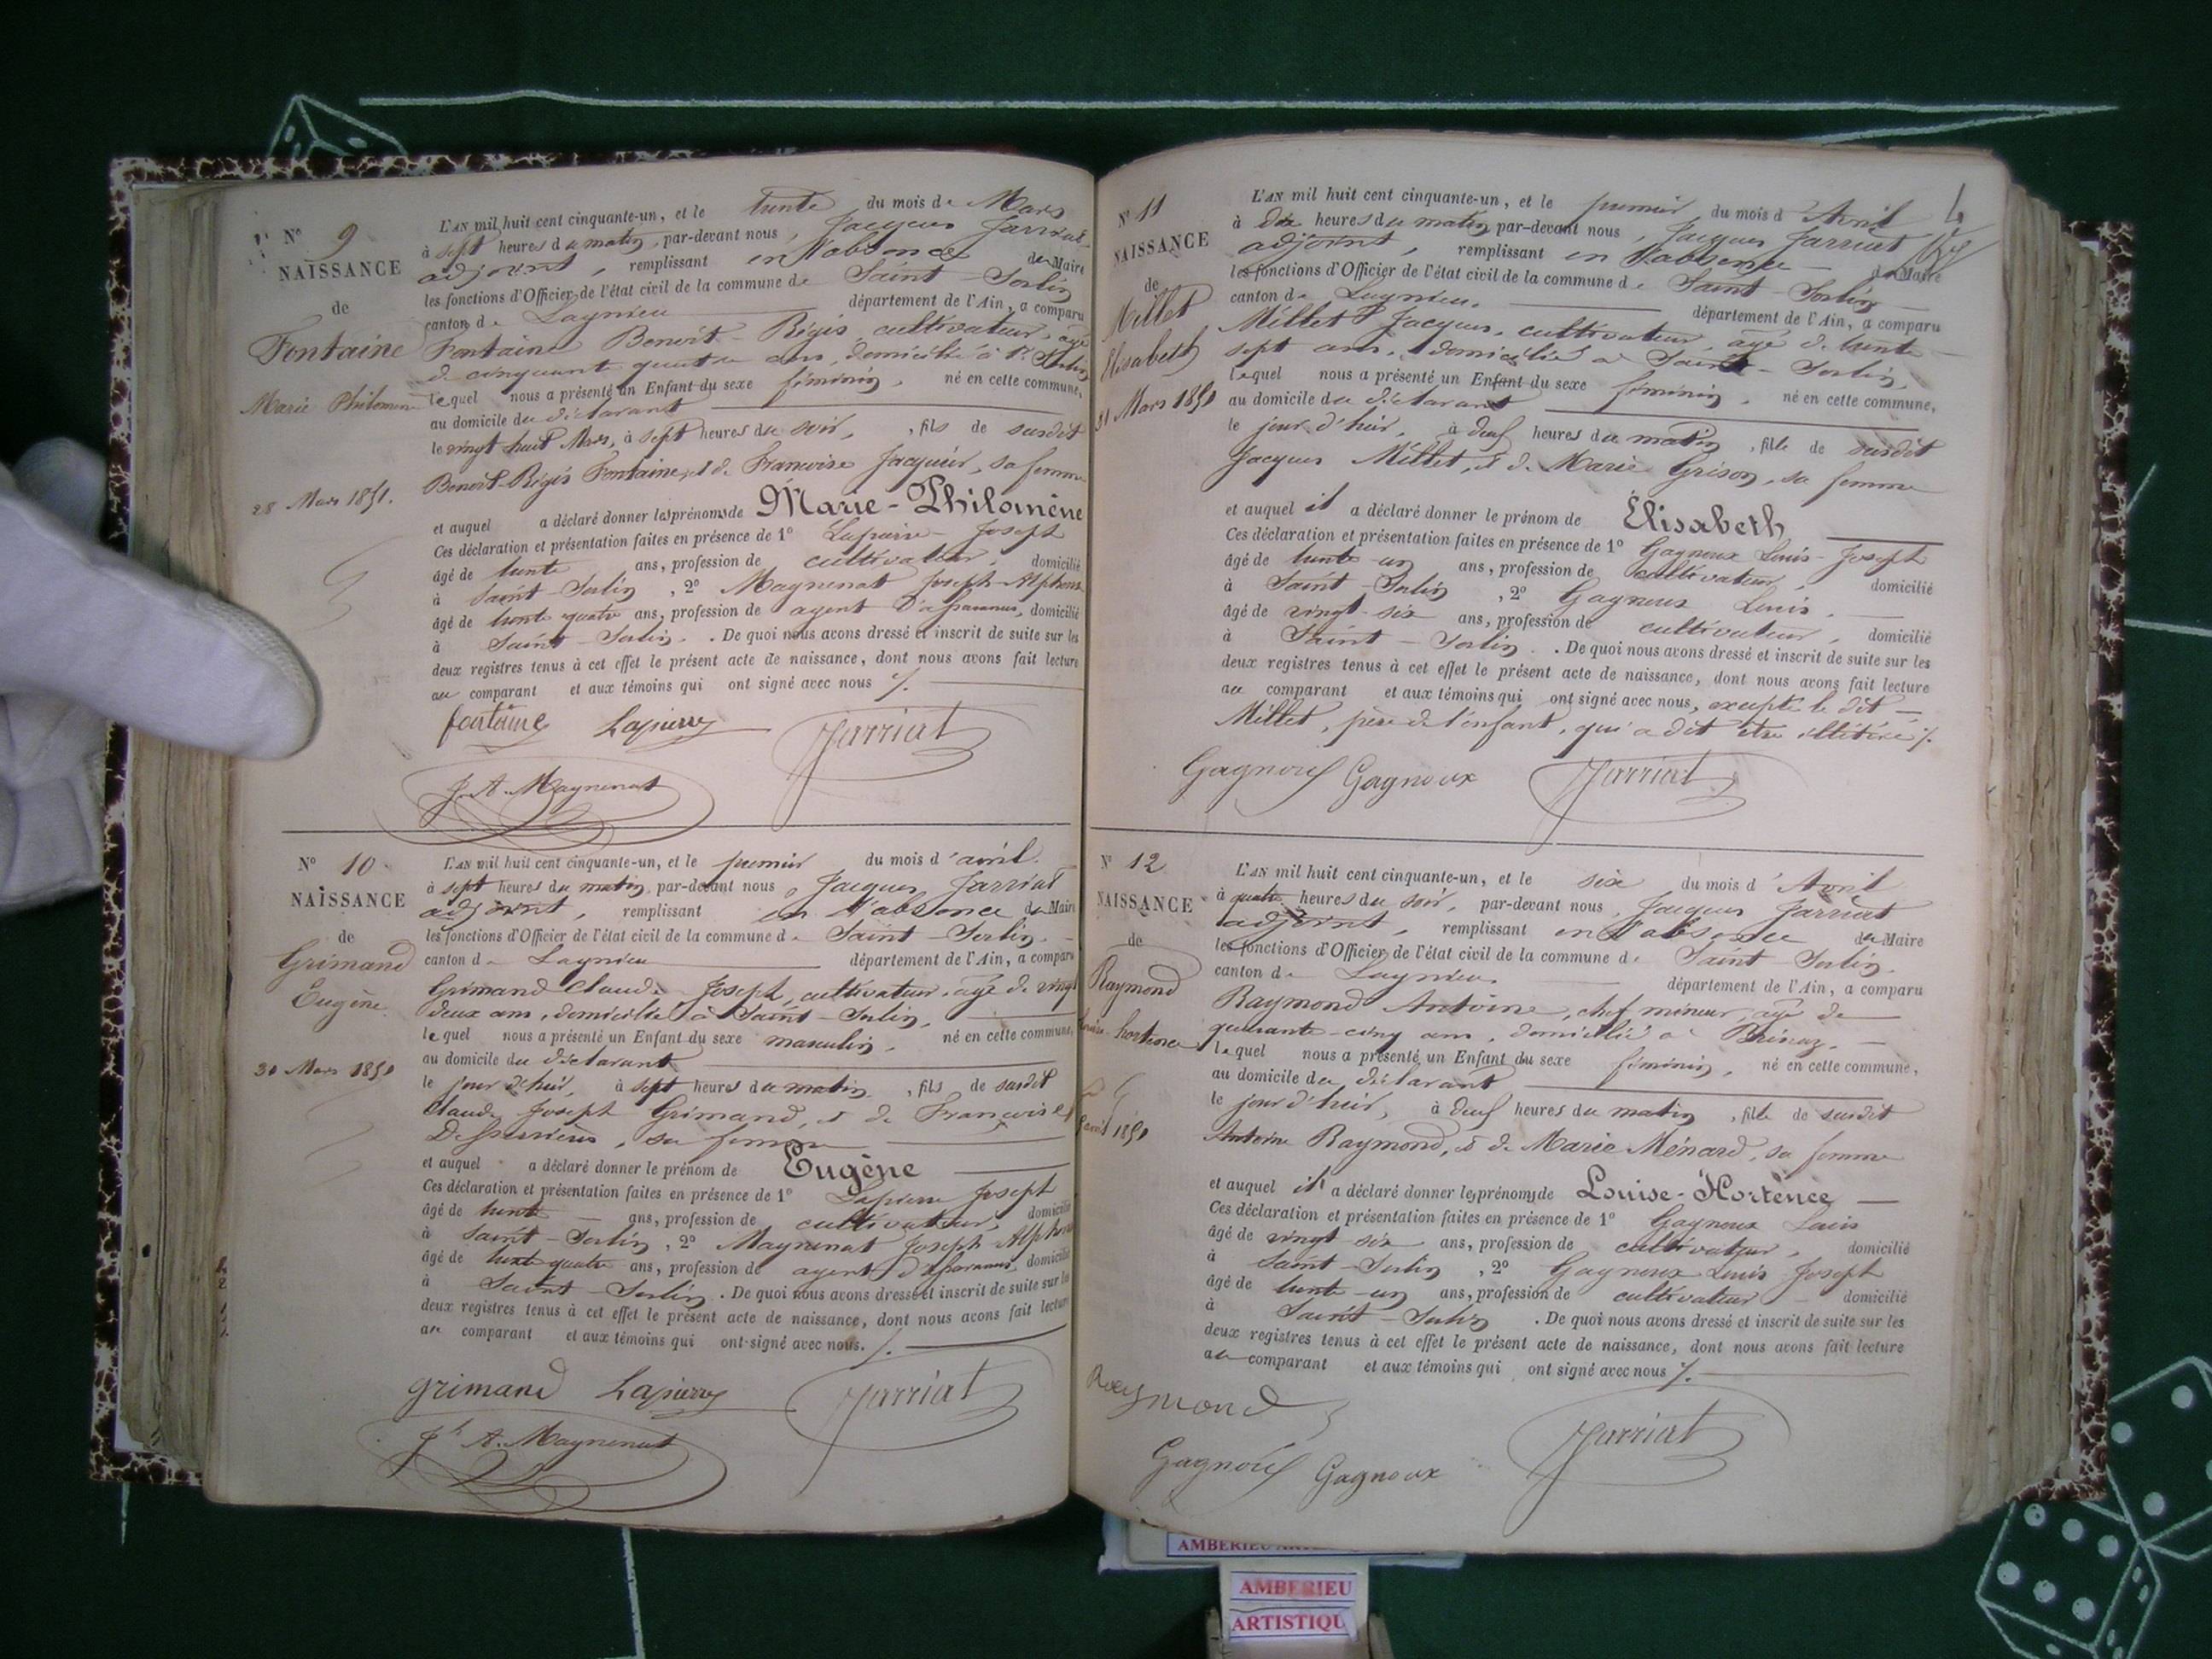 N° 9
NAISSANCE
de
Fontaine
Marie Philomène
28 Mars 1851.
L'AN mil huit cent cinquante-un, et le trente du mois de Mars
à sept heures du matin, par-devant nous, Jacques Jarriat
adjoint, remplissant en l'absence du Maire
les fonctions d'Officier de l'état civil de la commune de Saint-Sorlin
canton de Lagnieu département de l'Ain, a comparu
Fontaine Benoît-Régis cultivateur, âgé
de cinquante quatre ans, domicilié à St Sorlin
lequel nous a présenté un Enfant du sexe féminin, né en cette commune,
au domicile du déclarant
le vingt huit Mars, à sept heures du soir, fils de susdit
Benoît-Régis Fontaine, et de Françoise Jacquier, sa femme
et auquel a déclaré donner les prénoms de Marie-Philomène
Ces déclaration et présentation faites en présence de 1° Lapierre Joseph
âgé de trente ans, profession de cultivateur, domicilié
à Saint-Sorlin, 2° Magnenat Joseph-Alphonse
âgé de trente quatre ans, profession de agent d'assurances, domicilié
à Saint-Sorlin. De quoi nous avons dressé et inscrit de suite sur les
deux registres tenus à cet effet le présent acte de naissance, dont nous avons fait lecture
au comparant et aux témoins qui ont signé avec nous
fontaine Lapierre Jarriat
J. A. Magnenat
N° 10
NAISSANCE
de
Grimand
Eugène.
L'AN mil huit cent cinquante-un, et le premier du mois d'avril.
à sept heures du matin, par-devant nous, Jacques Jarriat
adjoint, remplissant en l'absence du Maire
les fonctions d'Officier de l'état civil de la commune de Saint-Sorlin.
canton de Lagnieu département de l'Ain, a comparu
Grimand Claude Joseph, cultivateur, âgé de vingt
deux ans, domicilié à Saint-Sorlin,
lequel nous a présenté un Enfant du sexe masculin, né en cette commune,
au domicile du déclarant
le jour d'hier, à sept heures du matin, fils de susdit
Claude Joseph Grimand, et de Françoise
sa femme
et auquel a déclaré donner le prénom de Eugène
Ces déclaration et présentation faites en présence de 1° Lapierre Joseph
âgé de trente ans, profession de cultivateur, domicilié
à Saint-Sorlin, 2° Magnenat Joseph Alphonse
âgé de trente quatre ans, profession de agent d'assurances, domicilié
à Saint-Sorlin. De quoi nous avons dressé et inscrit de suite sur les
deux registres tenus à cet effet le présent acte de naissance, dont nous avons fait lecture
au comparant et aux témoins qui ont signé avec nous.
grimand Lapierre Jarriat
Jh A. Magnenat
N° 11
NAISSANCE
de
Millet
Elisabeth
31 Mars 1851
L'AN mil huit cent cinquante-un, et le premier du mois d'Avril
à dix heures du matin, par-devant nous, Jacques Jarriat
adjoint, remplissant en l'absence du Maire
les fonctions d'Officier de l'état civil de la commune de Saint-Sorlin
canton de Lagnieu. département de l'Ain, a comparu
Millet Jacques, cultivateur, âgé de trente
sept ans, domicilié à Saint-Sorlin,
lequel nous a présenté un Enfant du sexe féminin, né en cette commune,
au domicile du déclarant
le jour d'hier, à deux heures du matin, fille de susdit
Jacques Millet, et de Marie Grison, sa femme
et auquel il a déclaré donner le prénom de Élisabeth
Ces déclaration et présentation faites en présence de 1° Gagneux Louis-Joseph
âgé de trente-un ans, profession de cultivateur, domicilié
à Saint-Sorlin, 2° Gagneux Louis.
âgé de vingt-six ans, profession de cultivateur, domicilié
à Saint-Sorlin. De quoi nous avons dressé et inscrit de suite sur les
deux registres tenus à cet effet le présent acte de naissance, dont nous avons fait lecture
au comparant et aux témoins qui ont signé avec nous, excepté le dit
Millet, père de l'enfant, qui a dit être illétéré
Gagnoux Gagnoux Jarriat
N° 12
NAISSANCE
de
Raymond
Louise-hortence
L'AN mil huit cent cinquante-un, et le six du mois d'Avril
à quatre heures du soir, par-devant nous, Jacques Jarriat
adjoint, remplissant en l'absence du Maire
les fonctions d'Officier de l'état civil de la commune de Saint-Sorlin.
canton de Lagnieu. département de l'Ain, a comparu
Raymond Antoine, chef mineur, âgé de
quarante-cinq ans, domicilié à
lequel nous a présenté un Enfant du sexe féminin, né en cette commune,
au domicile du déclarant
le jour d'hier, à deux heures du matin, fille de susdit
Antoine Raymond, et de Marie Ménard, sa femme
et auquel il a déclaré donner les prénoms de Louise-Hortence
Ces déclaration et présentation faites en présence de 1° Gagneux Louis
âgé de vingt-six ans, profession de cultivateur, domicilié
à Saint-Sorlin, 2° Gagneux Louis Joseph
âgé de trente-un ans, profession de cultivateur domicilié
à Saint-Sorlin. De quoi nous avons dressé et inscrit de suite sur les
deux registres tenus à cet effet le présent acte de naissance, dont nous avons fait lecture
au comparant et aux témoins qui ont signé avec nous
Raymond
Gagnoux Gagnoux Jarriat
AMBERIEU
AMBERIEU
ARTISTIQU